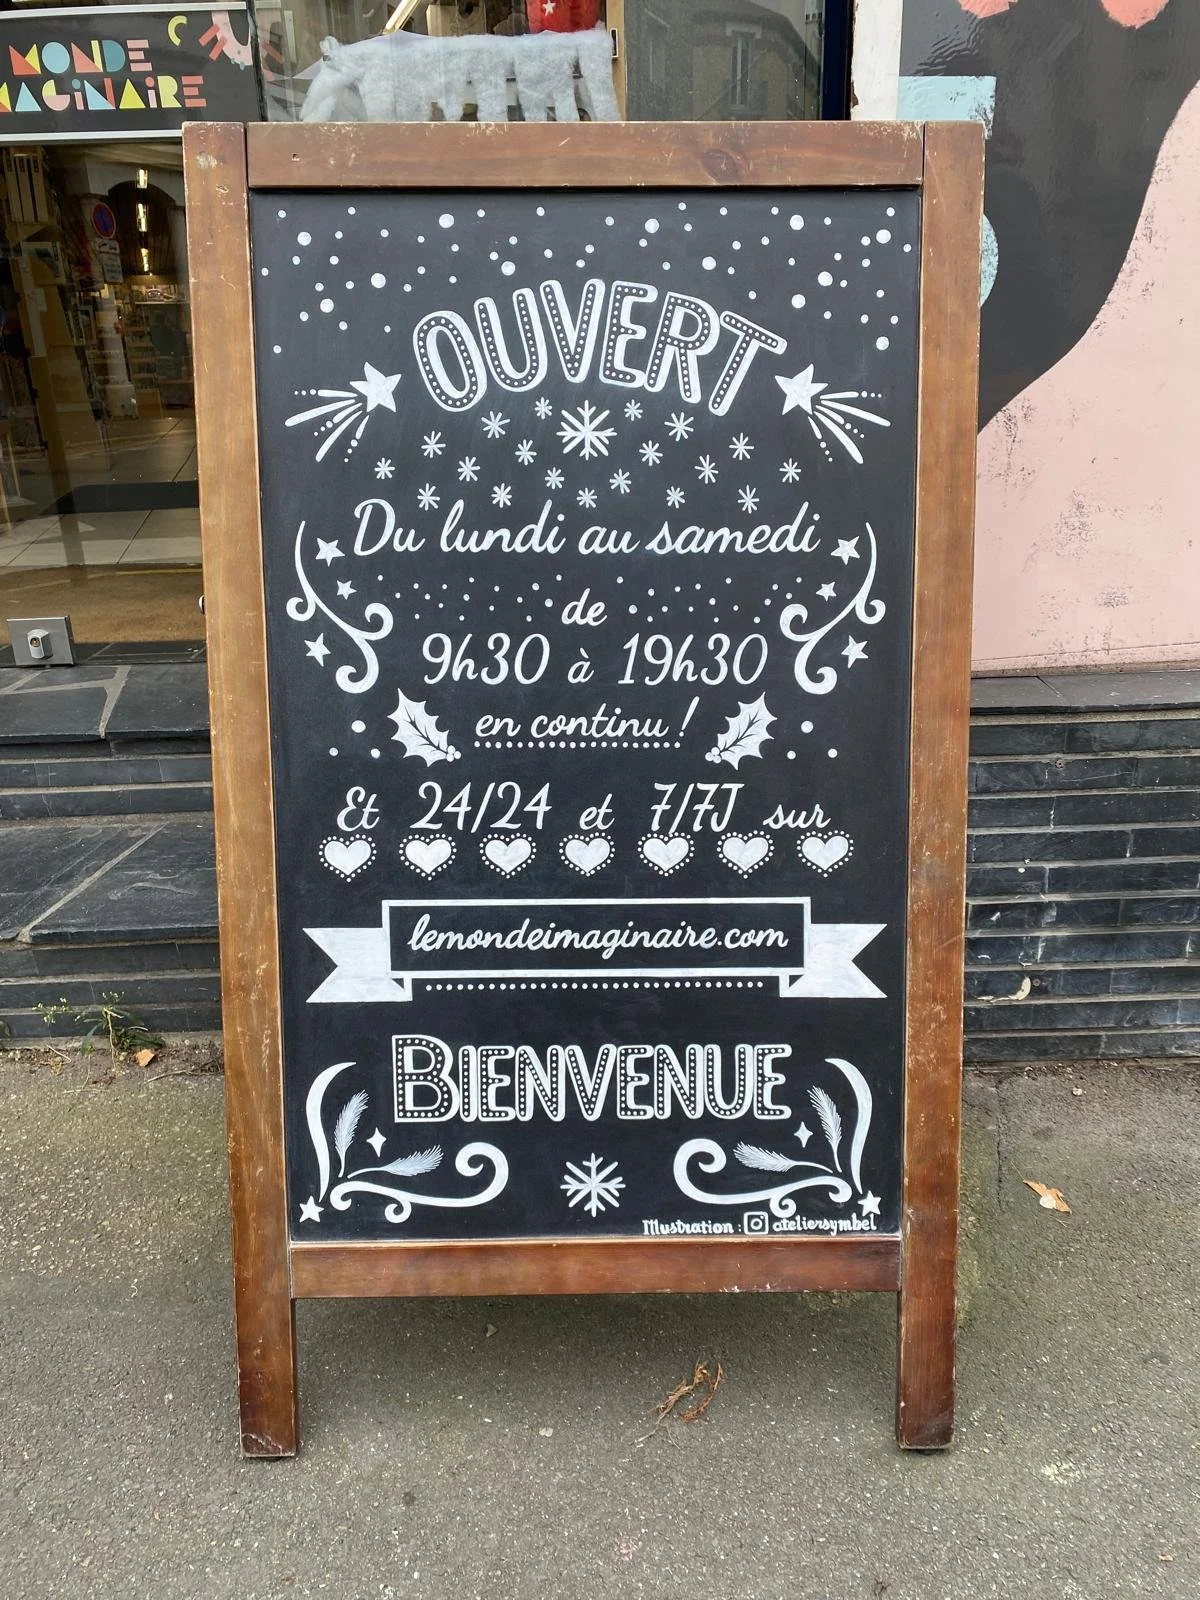 MONDE
IMAGINAIRE
OUVERT
Du lundi au samedi
de
9h30 à 19h30
en continu !
Et 24/24 et 7/7J sur
lemondeimaginaire.com
BIENVENUE
Illustration : ateliersymbel